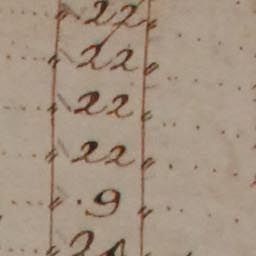 " 22 "
" 22 "
" 22 "
" 22 "
" 9 "